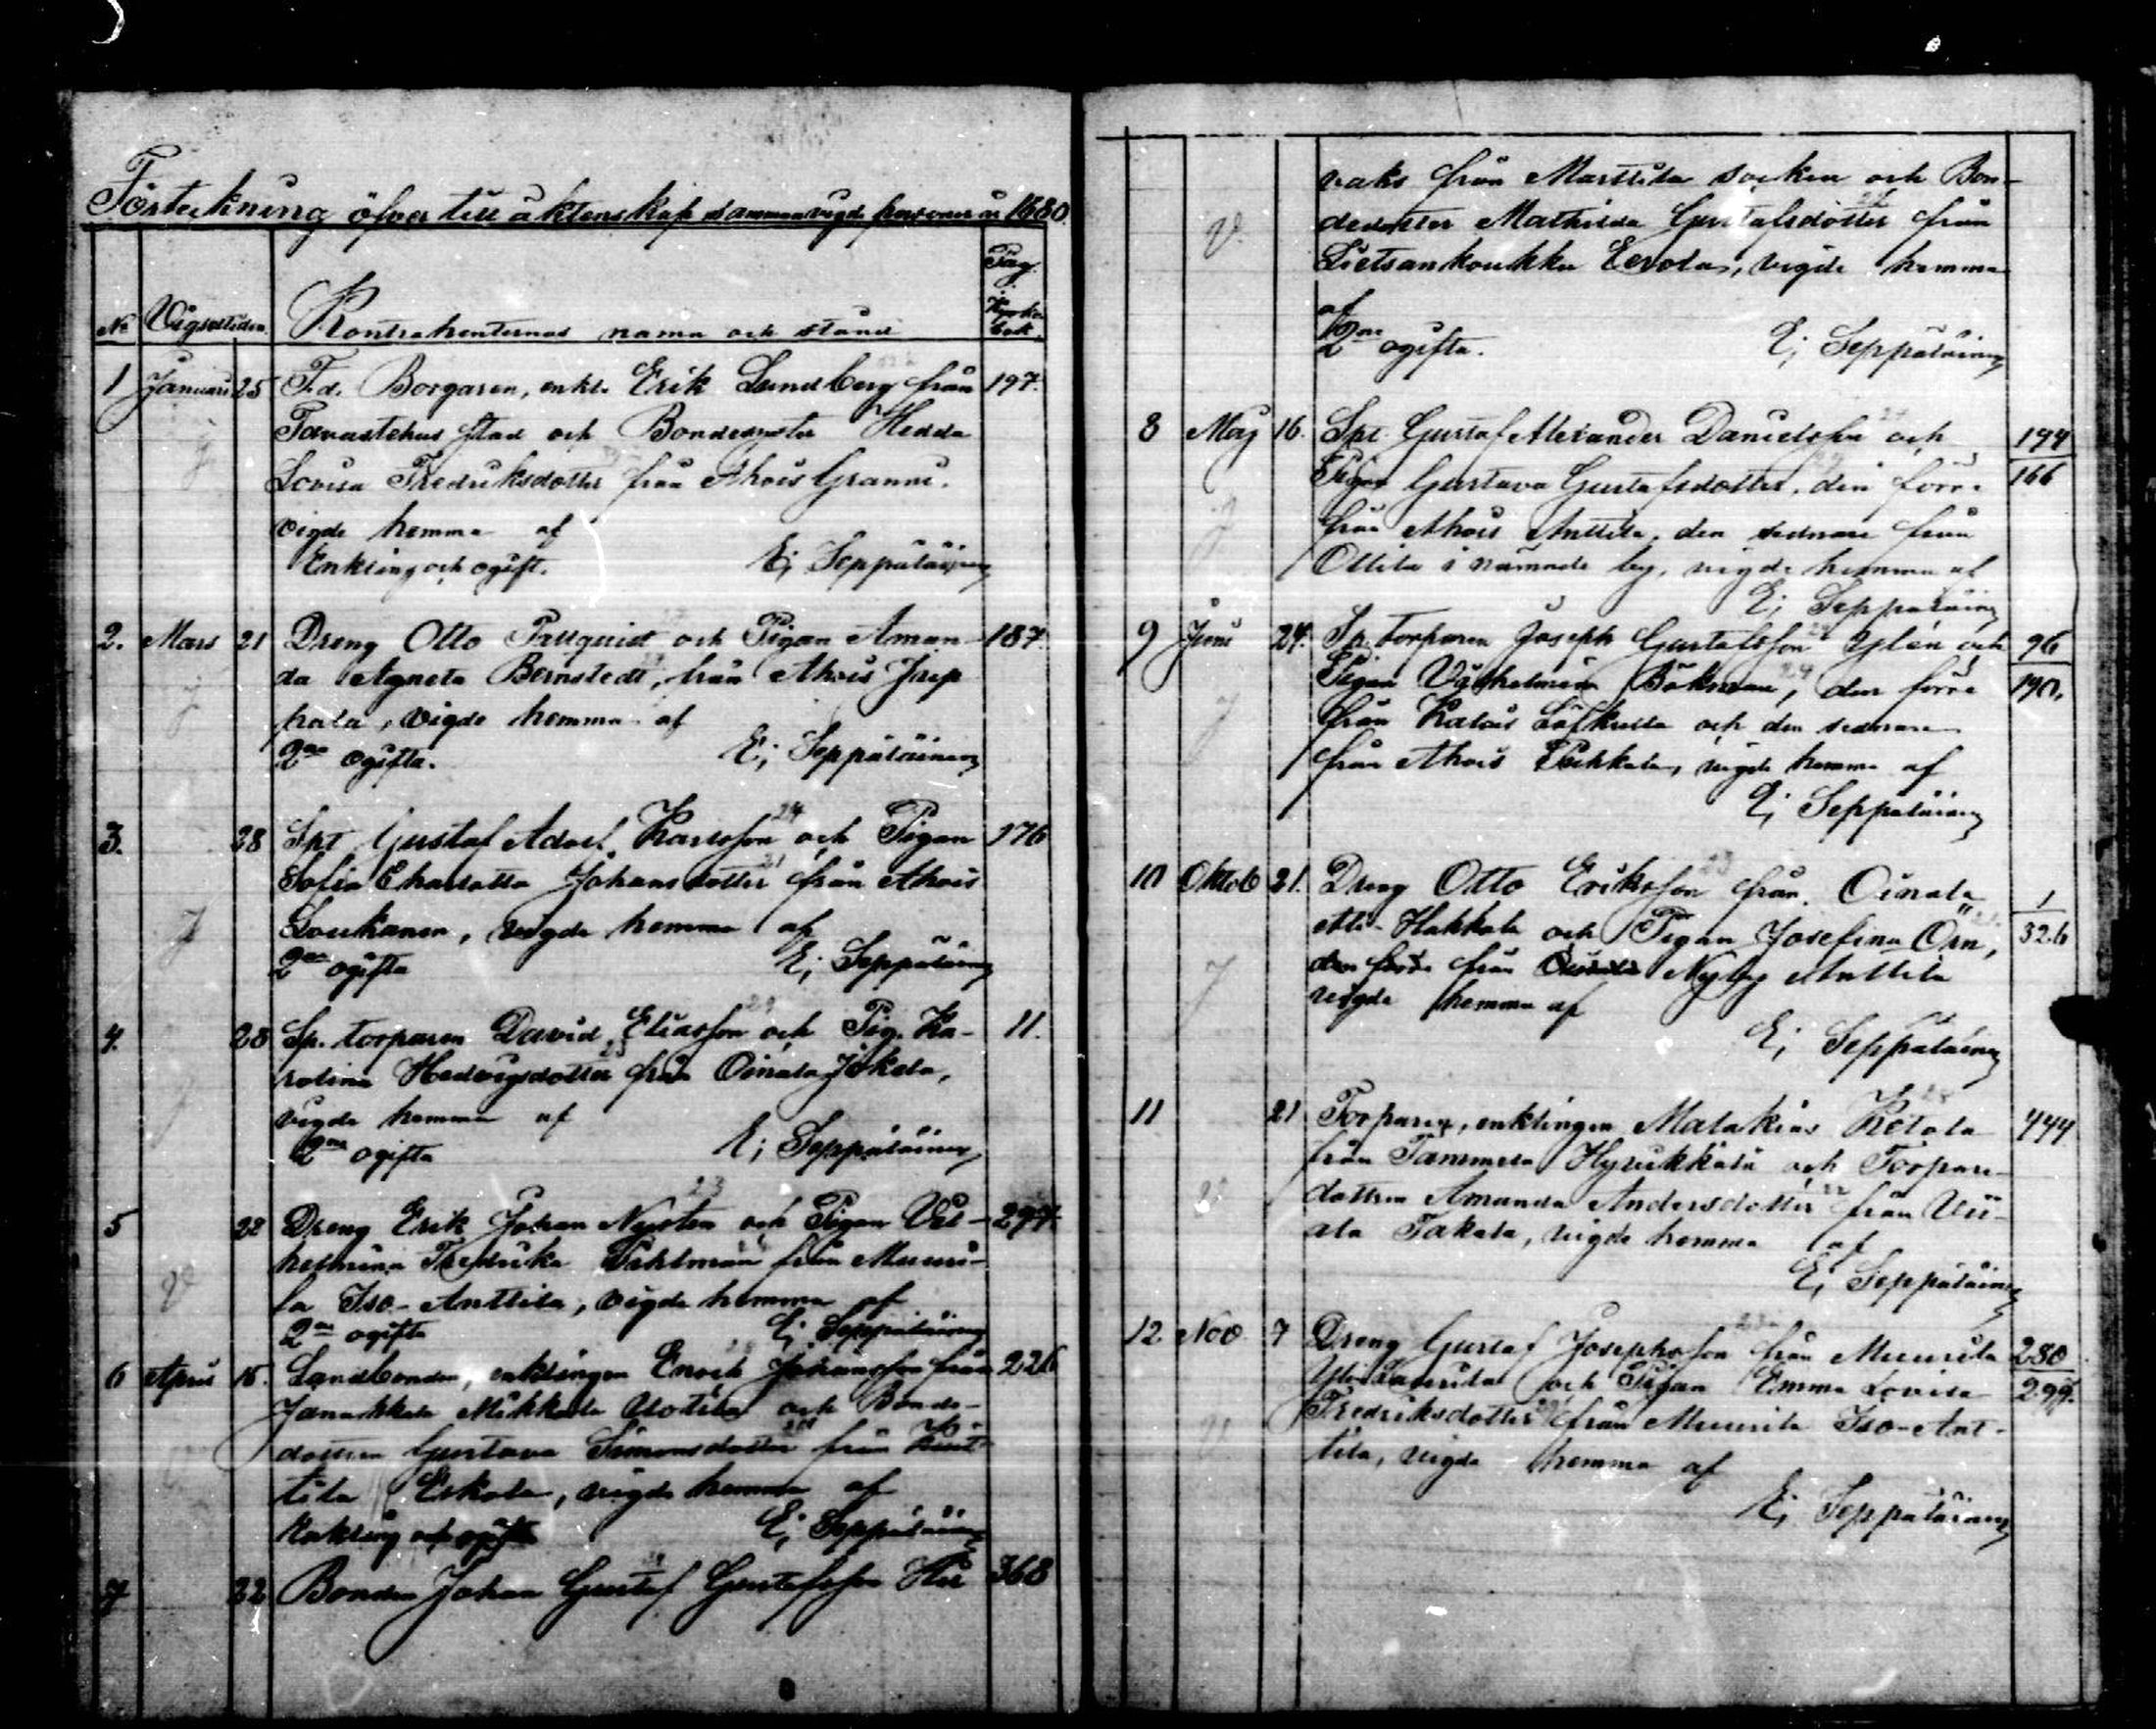 Förteckning öfver till äktenskap sammanvigde personer år 1880.
No Vigseltiden. Kontrahenternas namn och stånd Pag. i Kyrko bok.
1 Januari 25 F.d. Borgaren, enkl. Erik Lundberg från 197.
Tavastehus stad och Bondedotter Hedda
Lovisa Fredriksdotter från Ahois Granni.
vigde hemma af
Enkling och ogift. E; Seppäläinen
2. Mars 21 Dreng Otto Pallquist och Pigan Aman- 187.
da Agneta Bernstedt, från Ahois Jrep
pala, vigde hemma af
2ne ogifta. E; Seppäläinen
3. 28 Spt Gustaf Adolf Karlsson 24 och Pigan 176
Sofia Charlotta Johansdotter 21 från Ahois
Loukanen, vigde hemma af
2ne ogifta E; Seppäläinen
4. 28 Sp. torparen David Eliasson 29 och Pig. Ka- 11.
rolina Hedvigsdotter 23 från Oinala Jokela,
vigde hemma af
2ne ogifta E; Seppäläinen
5 22 Dreng Erik Johan Nysten 23 och Pigan Vil- 297.
helmina Fredrika Pihlman från Muuri-
la Iso-Anttila, vigde hemma af
2ne ogifta E; Seppäläinen
6 April 15. Landbonden, enklingen Enoch Johansson från 226
Janakkala Mikkola Uotila och Bonde-
dottren Gustava Simonsdotter från Hiit-
tila Eskola, vigde hemma af
Enkling och ogift E; Seppäläinen
7 22 Bonden Johan Gustaf Gustafsson Hii 368
vaks från Marttila socken och Bon-
dedotter Mathilda Gustafsdotter från
Lietsankoukku Eerola, vigde hemma
af
2ne ogifta. E; Seppäläinen
8 Maj 16. Spt. Gustaf Alexander Danielsson och 194
Pigan Gustava Gustafsdotter, den förre 166
från Ahois Anttila, den sednare från
Ollila i nämnde by, vigde hemma af
E; Seppäläinen
9 Juni 24. Sp. torparen Joseph Gustafsson Ylén och 96
Pigan Vilhelmina Bökman 24, den förre 190.
från Kalais Löfkulla och den sednare
från Ahois Pukkala, vigde hemma af
E; Seppäläinen
10 Oktob 21. Dreng Otto Eriksson 23 från Oinala 1
Ali-Hakkala och Pigan Josefina Örn, 326
den förre från Nyby Anttila
vigde hemma af
E; Seppäläinen
11 21 Torparen, enklingen Malakias Ketola 444
från Tammela Hyrukkälä och Torpare-
dottren Amanda Andersdotter 22 från Vii-
ala Takala, vigde hemma af
E; Seppäläinen
12 Nov. 7 Dreng Gustaf Josephsson från Muurila 280
Yli-Laurila och Pigan Emma Lovisa 299.
Fredriksdotter från Muurila Iso-Ant-
tila, vigde hemma af
E; Seppäläinen